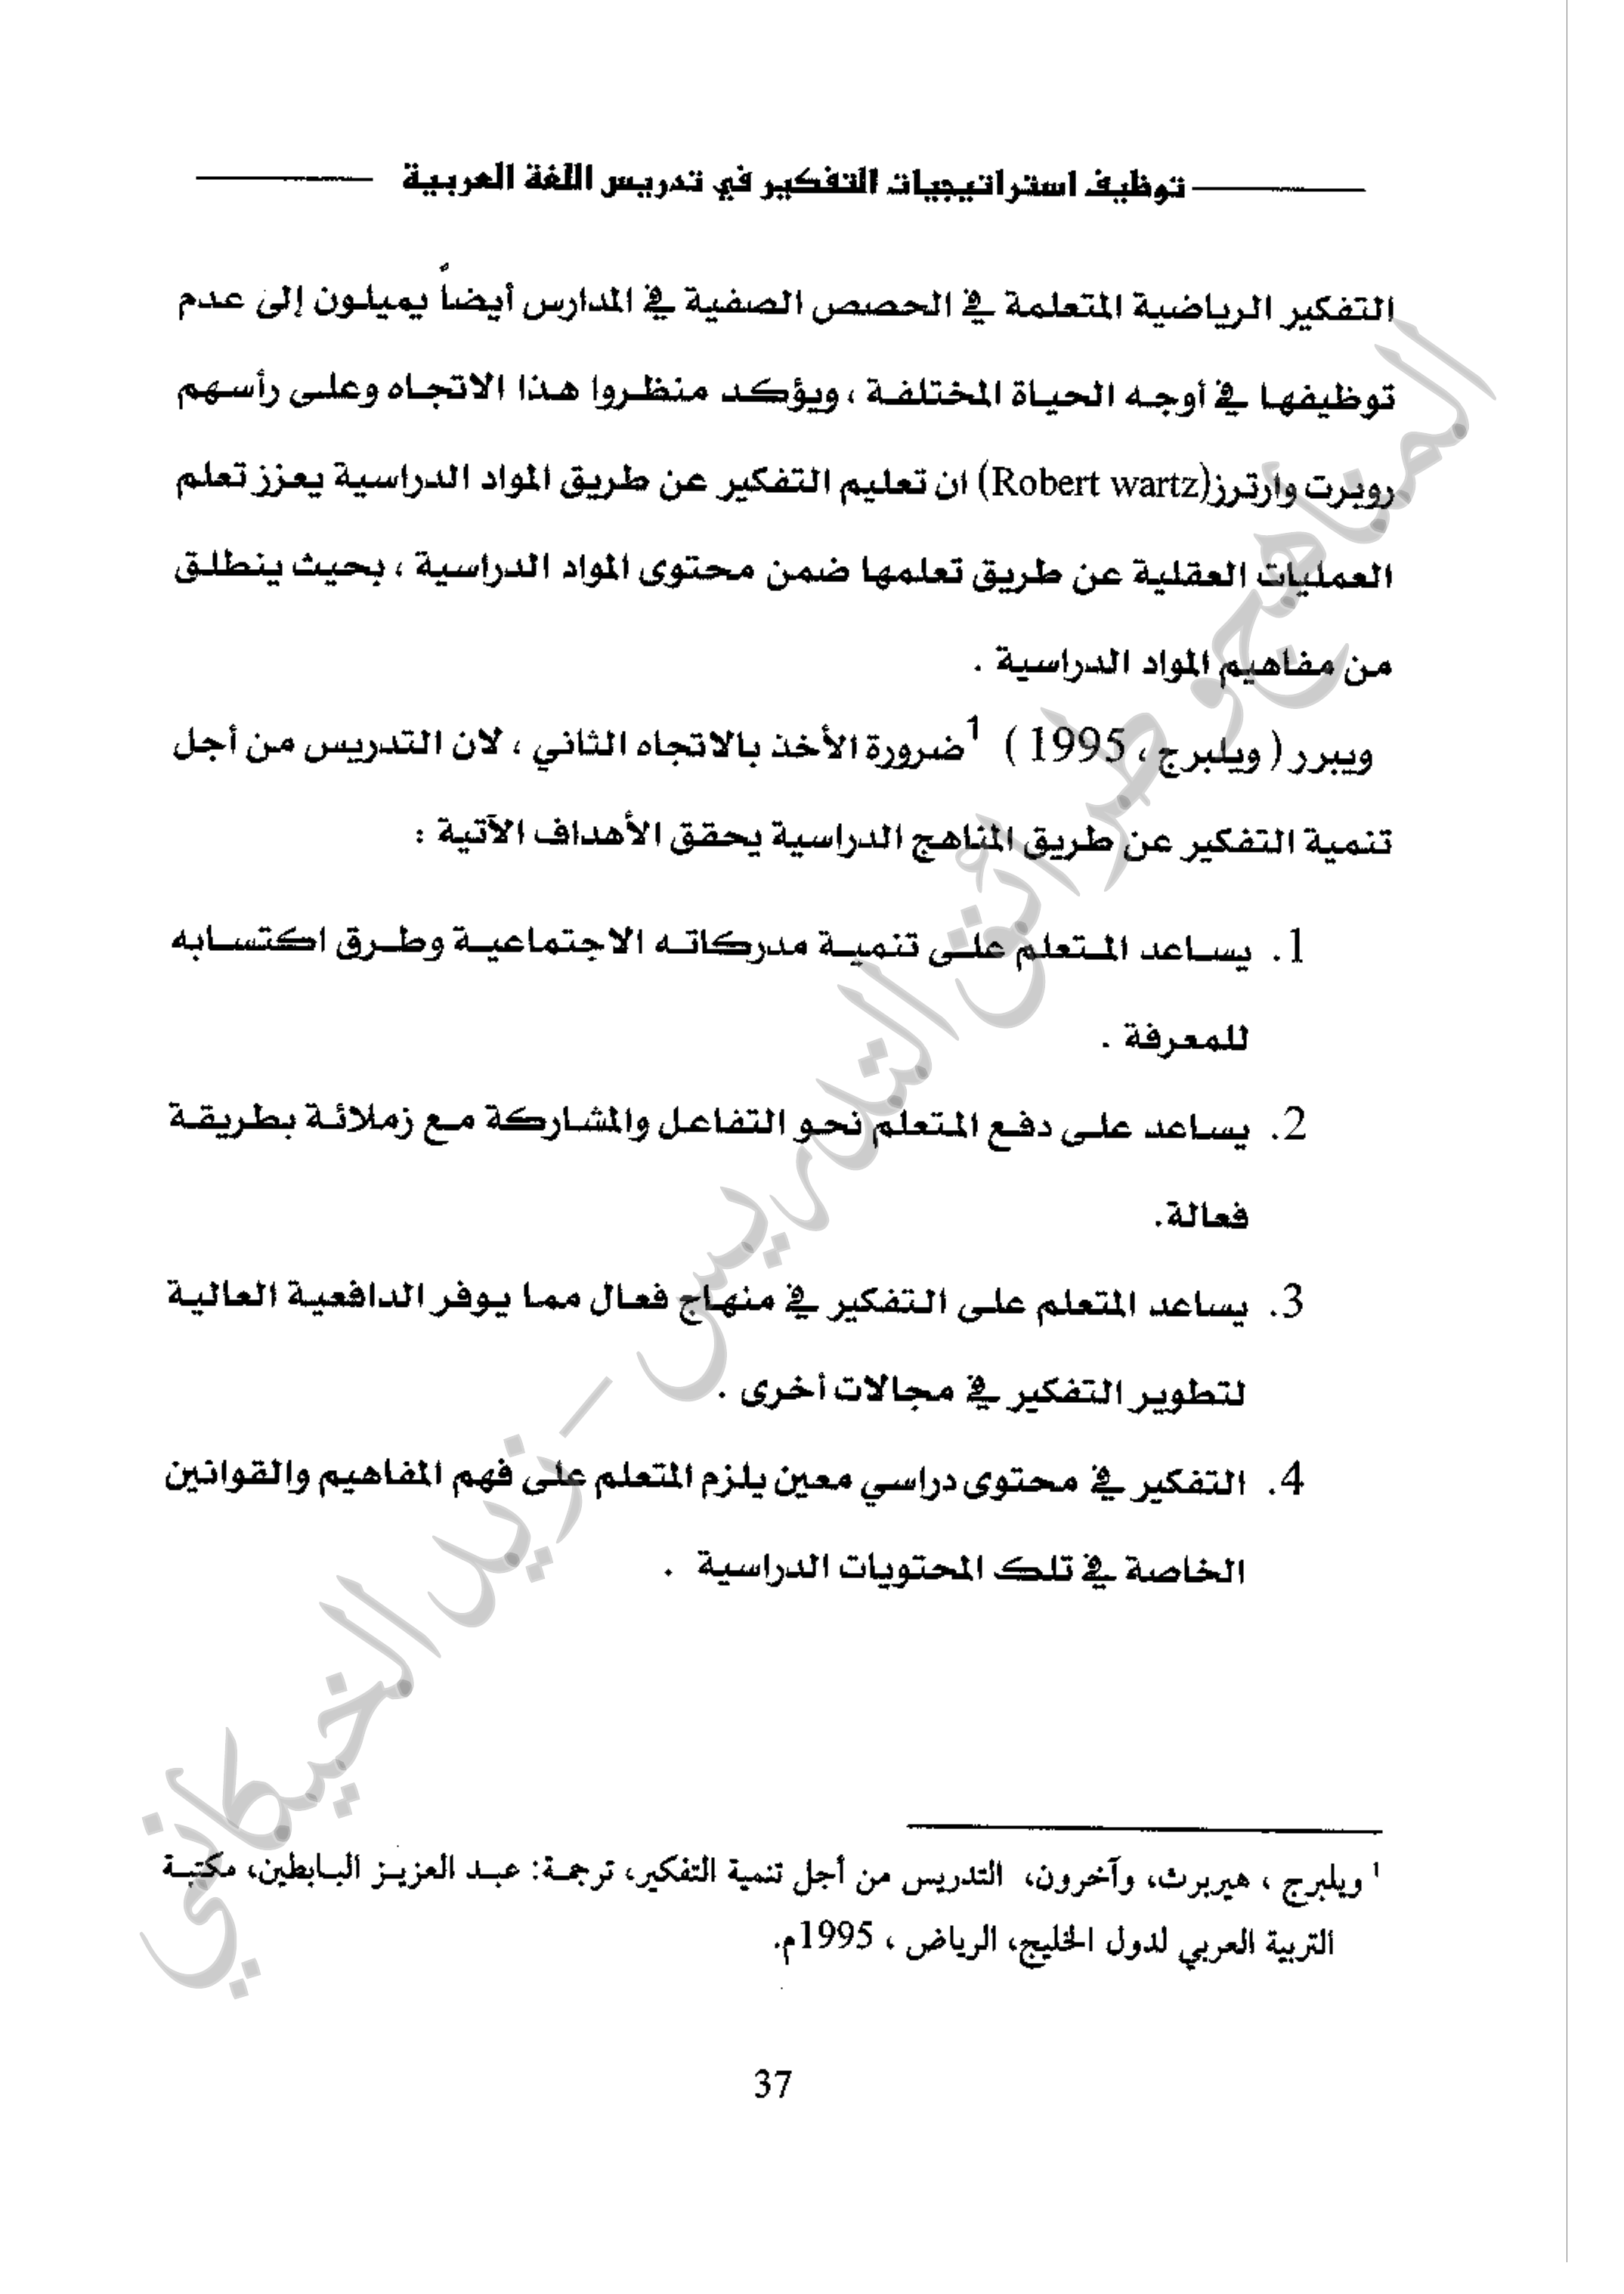 توظيف استراتيجيات التفكير في تدريس اللغة العربية
التفكير الرياضية المتعلمة في الحصص الصفية في المدارس أيضاً يميلون إلى عدم
توظيفها في أوجه الحياة المختلفة ، ويؤكد منظروا هذا الاتجاه وعلى رأسهم
روبرت وارترز(Robert wartz) ان تعليم التفكير عن طريق المواد الدراسية يعزز تعلم
العمليات العقلية عن طريق تعلمها ضمن محتوى المواد الدراسية ، بحيث ينطلق
من مفاهيم المواد الدراسية .
ويبرر ( ويلبرج ، 1995 ) 1 ضرورة الأخذ بالاتجاه الثاني ، لان التدريس من أجل
تنمية التفكير عن طريق المناهج الدراسية يحقق الأهداف الآتية :
1. يساعد المتعلم على تنمية مدركاته الاجتماعية وطرق اكتسابه
للمعرفة .
2. يساعد على دفع المتعلم نحو التفاعل والمشاركة مع زملائة بطريقة
فعالة.
3. يساعد المتعلم على التفكير في منهاج فعال مما يوفر الدافعية العالية
لتطوير التفكير في مجالات أخرى .
4. التفكير في محتوى دراسي معين يلزم المتعلم على فهم المفاهيم والقوانين
الخاصة في تلك المحتويات الدراسية .
1 ويلبرج ، هيربرث، وآخرون، التدريس من أجل تنمية التفكير، ترجمة: عبد العزيز البابطين، مكتبة
التربية العربي لدول الخليج، الرياض ، 1995م.
37
المناهج وطرائق التدريس - زيد الخيكاني